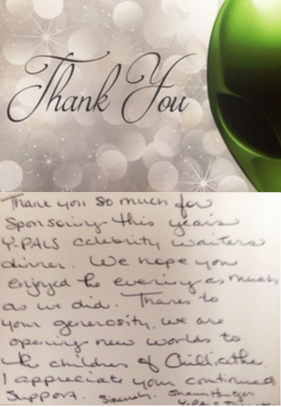 Thank You
Thank you so much for
sponsoring this years
Y-PALS celebrity waiters
dinner. We hope you
enjoyed the evening as much
as we did. Thanks to
your generosity, we are
opening new worlds to
the children of Chillicothe.
I appreciate your continued
support. Sincerely,